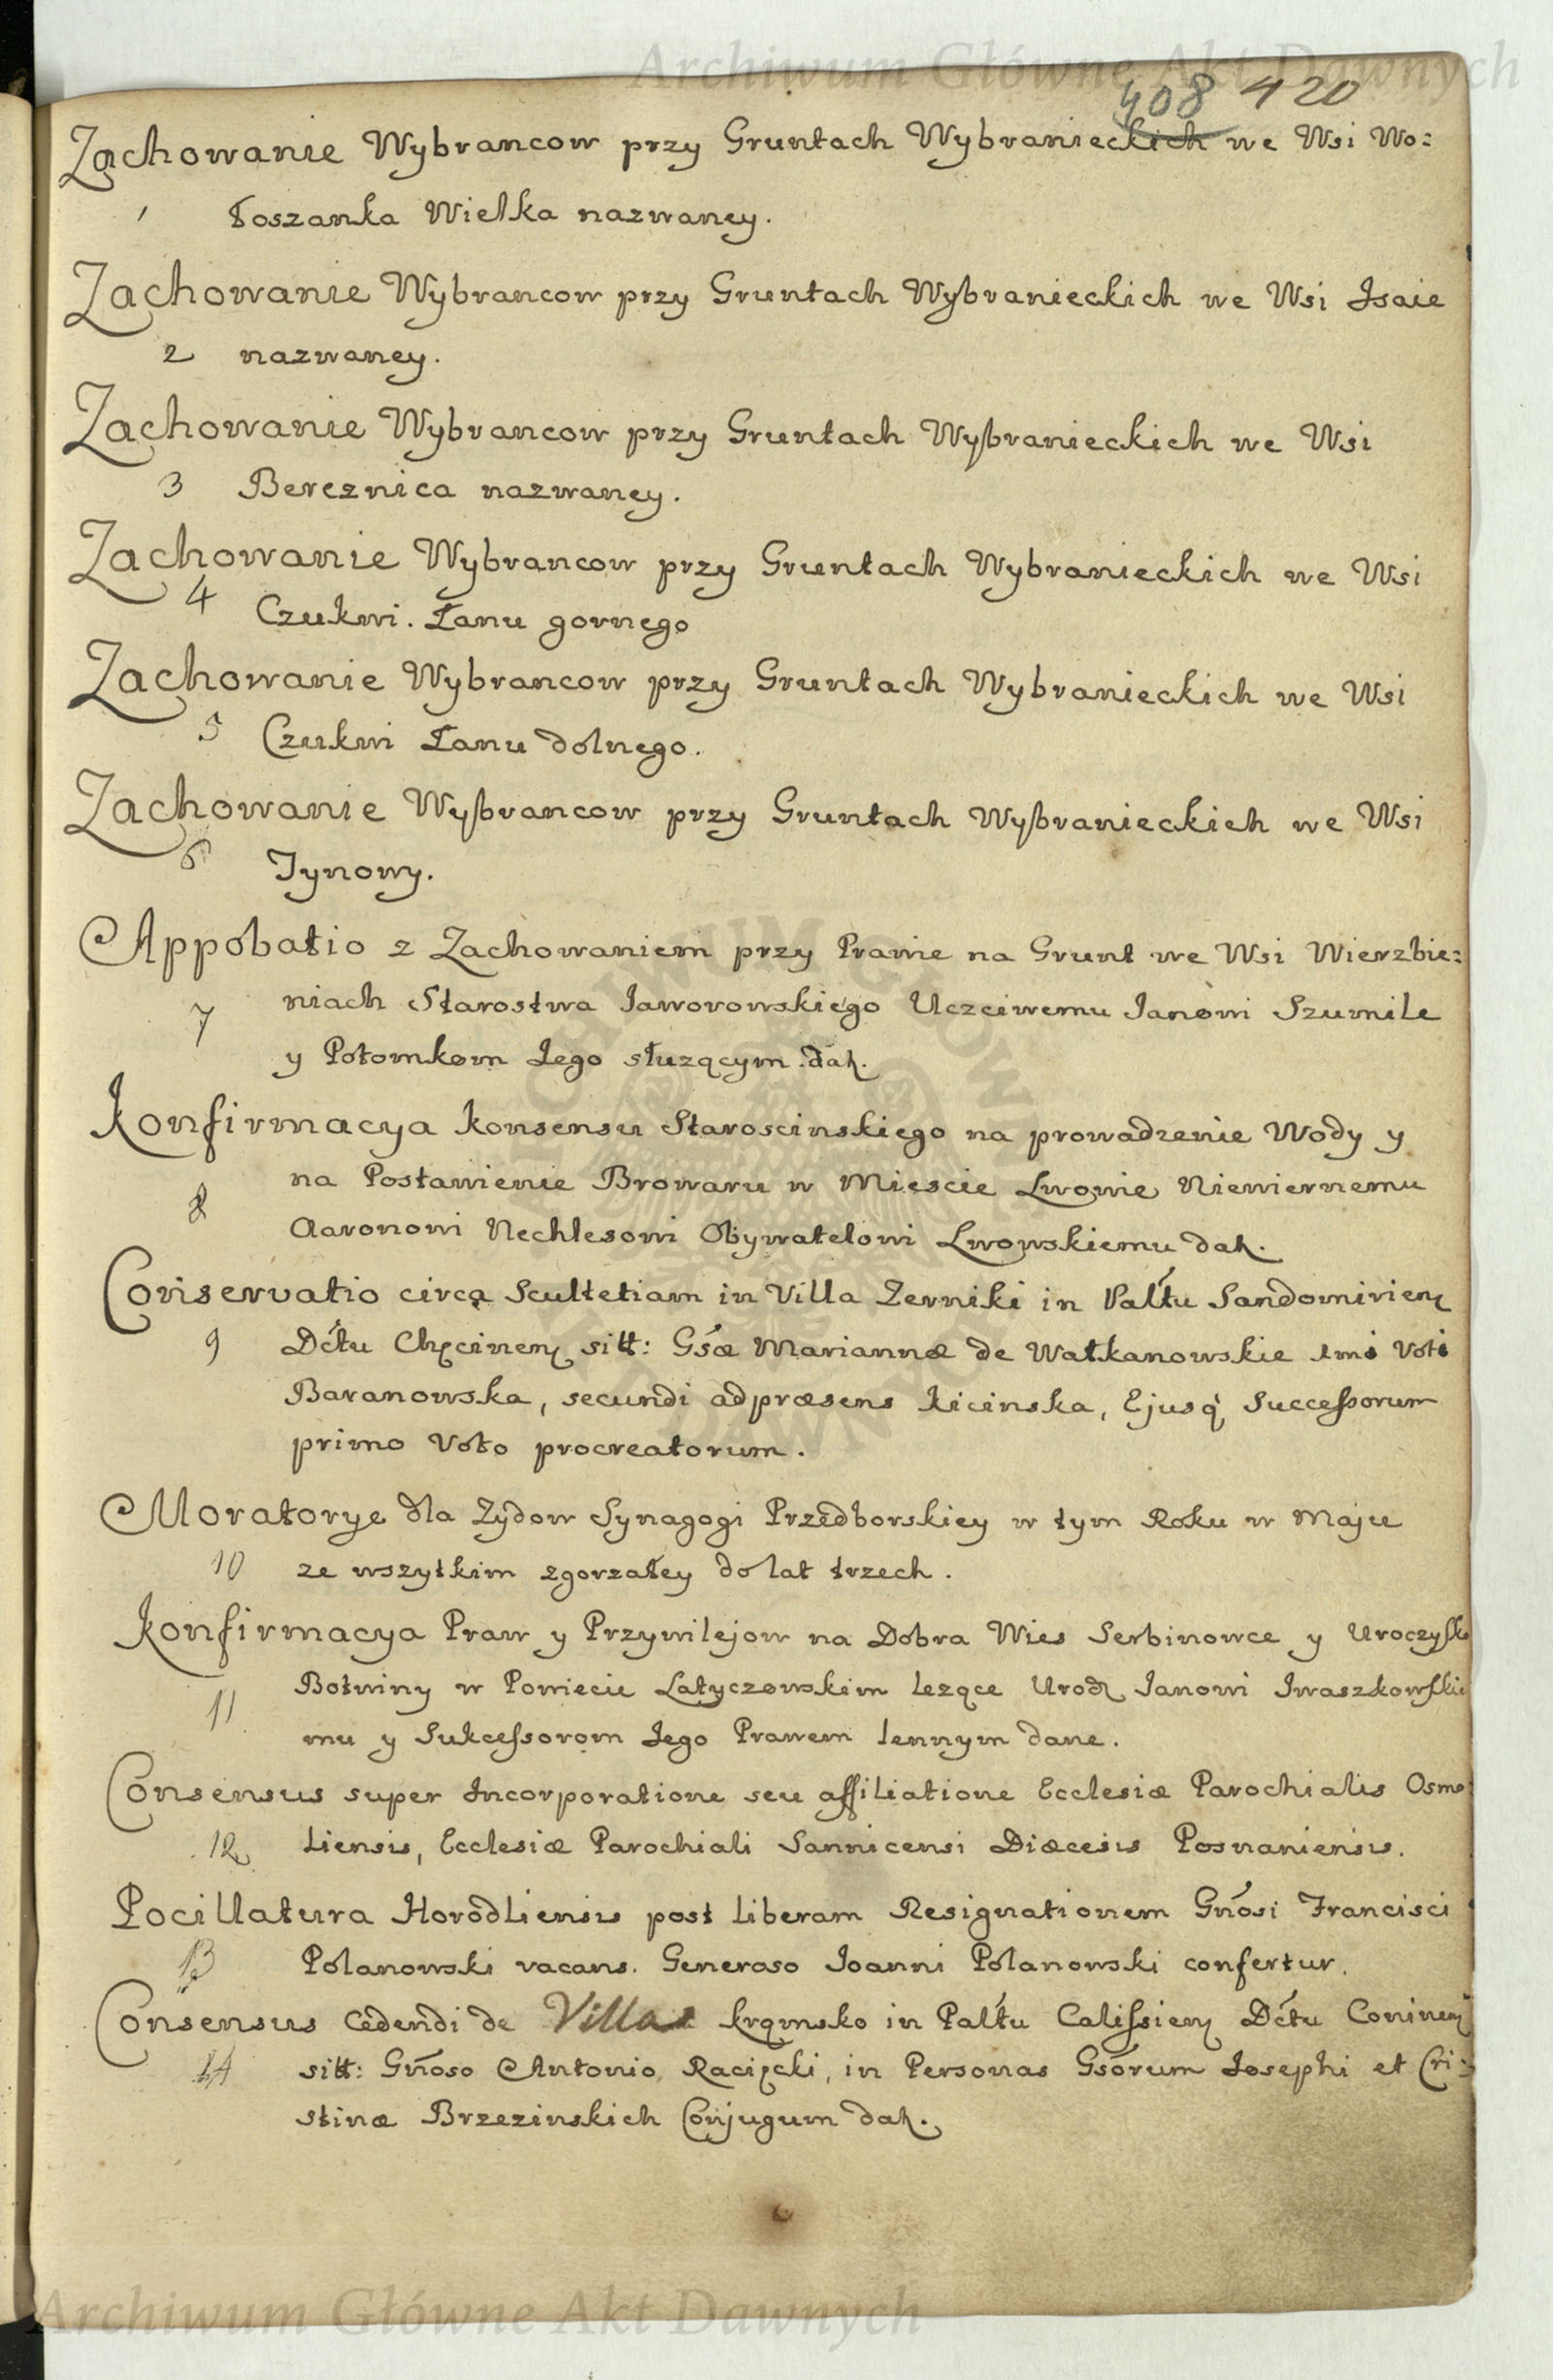 Archiwum Główne Akt Dawnych
408 420
Zachowanie Wybrancow przy Gruntach Wybranieckich we Wsi Wo:
1 łoszanka Wielka nazwaney.
Zachowanie Wybrancow przy Gruntach Wybranieckich we Wsi Isaie
2 nazwaney.
Zachowanie Wybrancow przy Gruntach Wybranieckich we Wsi
3 Bereznica nazwaney.
Zachowanie Wybrancow przy Gruntach Wybranieckich we Wsi
4 Czukwi. Łanu gornego
Zachowanie Wybrancow przy Gruntach Wybranieckich we Wsi
5 Czukwi Łanu dolnego.
Zachowanie Wybrancow przy Gruntach Wybranieckich we Wsi
6 Tynowy.
Appobatio z Zachowaniem przy Prawie na Grunt we Wsi Wierzbie:
7 niach Starostwa Jaworowskiego Uczciwemu Janowi Szumile
y Potomkom Jego słuząçym dat.
Konfirmacya konsensu Staroscinskiego na prowadzenie Wody y
8 na Postawienie Browaru w Miescie Lwowie Niewiernemu
Aaronowi Nechlesowi Obywatelowi Lwowskiemu dat.
Conservatio circa Scultetiam in Villa Zerniki in Paltu Sandomirien
9 Dctu Chęcinen sitt: Gsæ Mariannæ de Watkanowskie 1mi Voti
Baranowska, secundi adpræsens Kicinska, Ejusq Successorum
primo Voto procreatorum.
Moratorye dla Zydow Synagogi Przedborskiey w tym Roku w Maju
10 ze wszytkim zgorzałey do lat trzech.
Konfirmacya Praw y Przywilejow na Dobra Wies Serbinowce y Uroczysko
11 Botwiny w Powiecie Latyczowskim lezące Urodz Janowi Iwaszkowskie
mu y Sukcessorom Jego Prawem lennym dane.
Consensus super Incorporatione seu affiliatione Ecclesiæ Parochialis Osmo:
12 liensis, Ecclesiæ Parochiali Sannicensi Diæcesis Posnaniensis.
Pocillatura Horodliensis post liberam Resignationem Gnosi Francisci
13 Polanowski vacans. Generoso Joanni Polanowski confertur.
Consensus cedendi de Villa Krąmsko in Paltu Calissien Dctu Coninen
14 sitt: Gnoso Antonio Racięcki, in Personas Gsorum Josephi et Cri:
stinæ Brzezinskich Conjugum dat.
Archiwum Główne Akt Dawnych